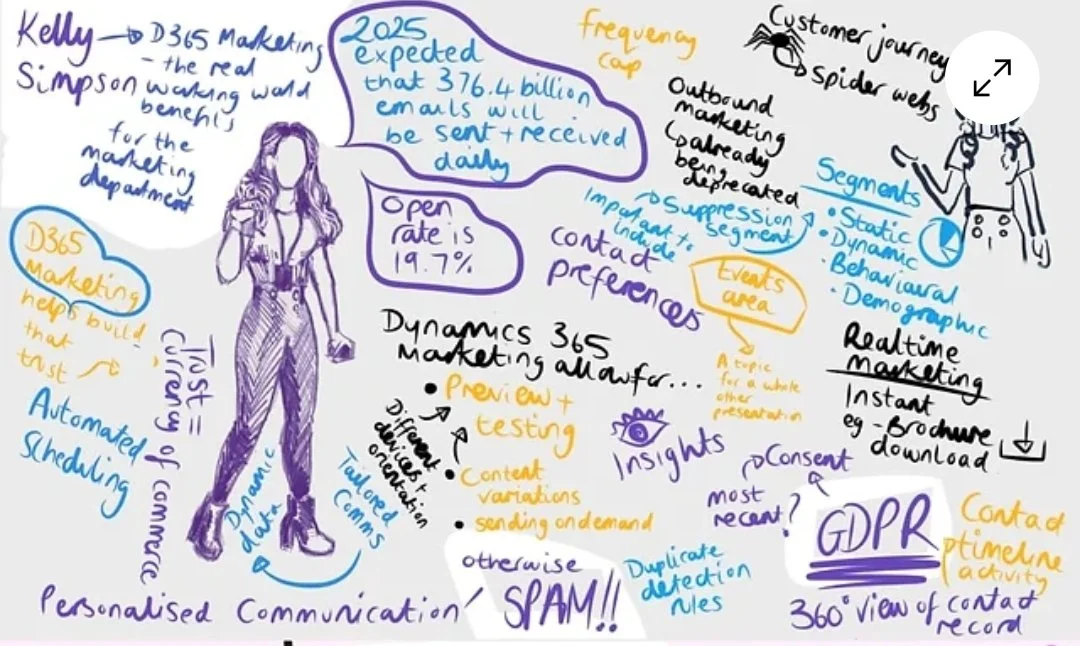 Kelly
Simpson
D365 Marketing
- the real
waking wald
benefits
for the
marketing
department
2025
expected
that 376.4 billion
emails will
be sent + received
daily
Open
rate is
19.7%
frequency
cap
Customer journey
Spider webs
Outbound
marketing
already
being
deprecated
Suppression
segment
Important to
include
Segments
• Static
• Dynamic
• Behavioural
• Demographic
contact
preferences
Events
area
A topic
for a whole
other
presentation
D365
Marketing
helps build
that
trust
Trust =
Currency of commerce
Automated
Scheduling
Dynamics 365
Marketing allow for...
• Preview +
testing
Different
devices +
orientation
• Content
variations
• sending on demand
Insights
Realtime
Marketing
Instant
eg - Brochure
download
Consent
most
recent?
GDPR
Contact
timeline
activity
360° view of contact
record
Dynamic
data
Tailored
Comms
Personalised Communication
otherwise
SPAM!!
Duplicate
detection
rules